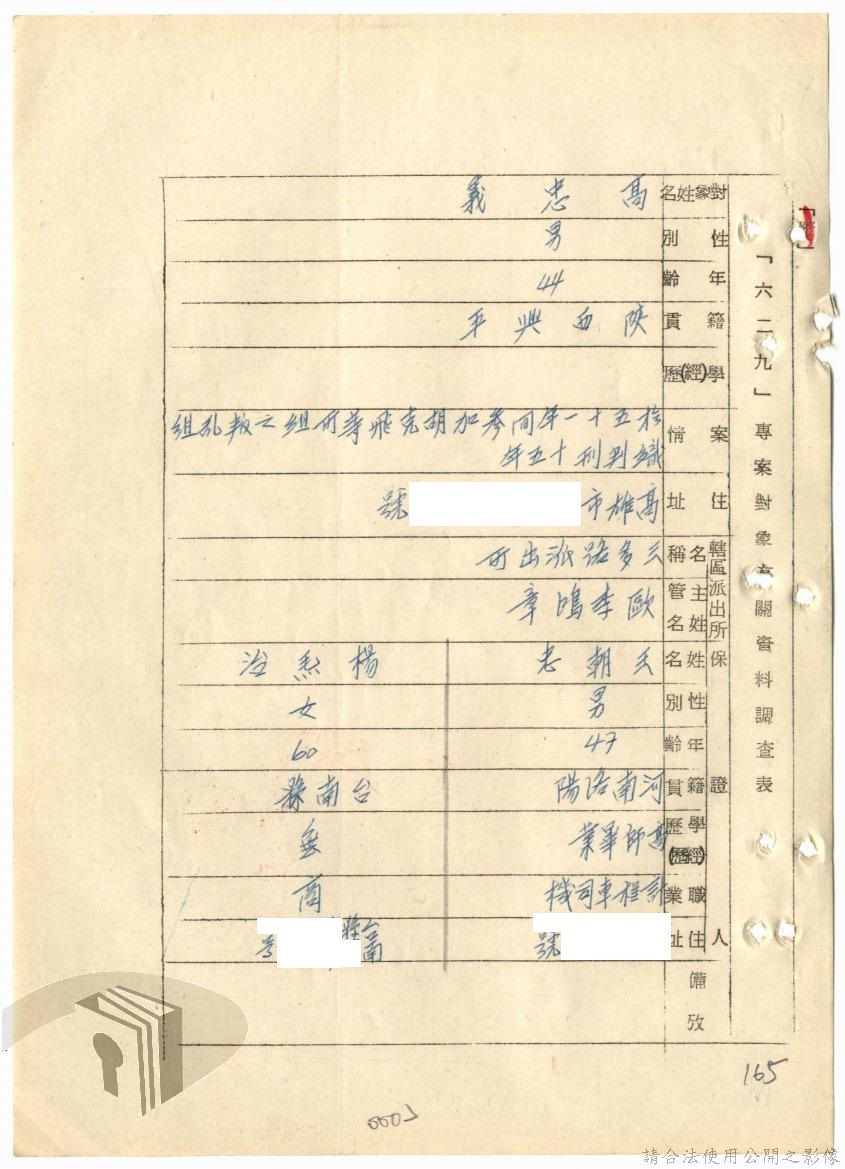 「密」
「六二九」專案對象有關資料調查表
對象姓名 高忠義
性別 男
年齡 44
籍貫 陝西興平
學(經)歷
案情 於五十一年間參加胡克飛等所組之叛亂組
織判刑十五年
住址 高雄市 號
轄區派出所
名稱 三多路派出所
主管姓名 歐季鳴章
保證人
姓名 王朝志
性別 男
年齡 47
籍貫 河南洛陽
學(經)歷 高師畢業
職業 計程車司機
住址 號
楊 治
女
60
台南縣
無
商
台南 号
備攷
165
請合法使用公開之影像